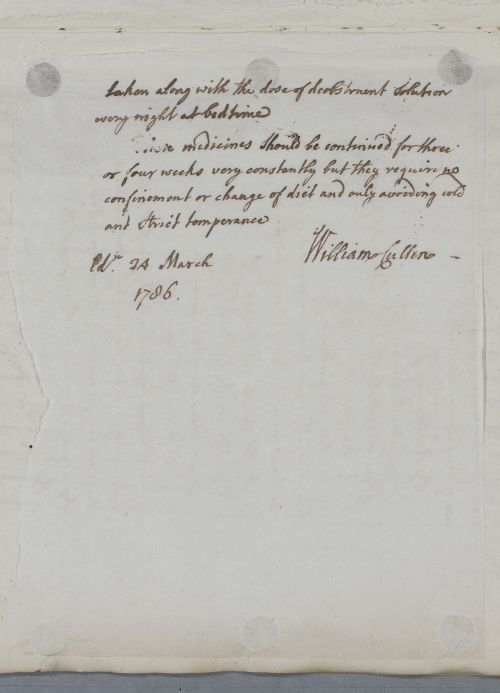 taken along with the dose of deobstruent Solution
every night at bedtime
These medicines should be continued for three
or four weeks very constantly but they require no
confinement or change of diet and only avoiding cold
and strict temperance
Edr. 24 March
William Cullen
1786.